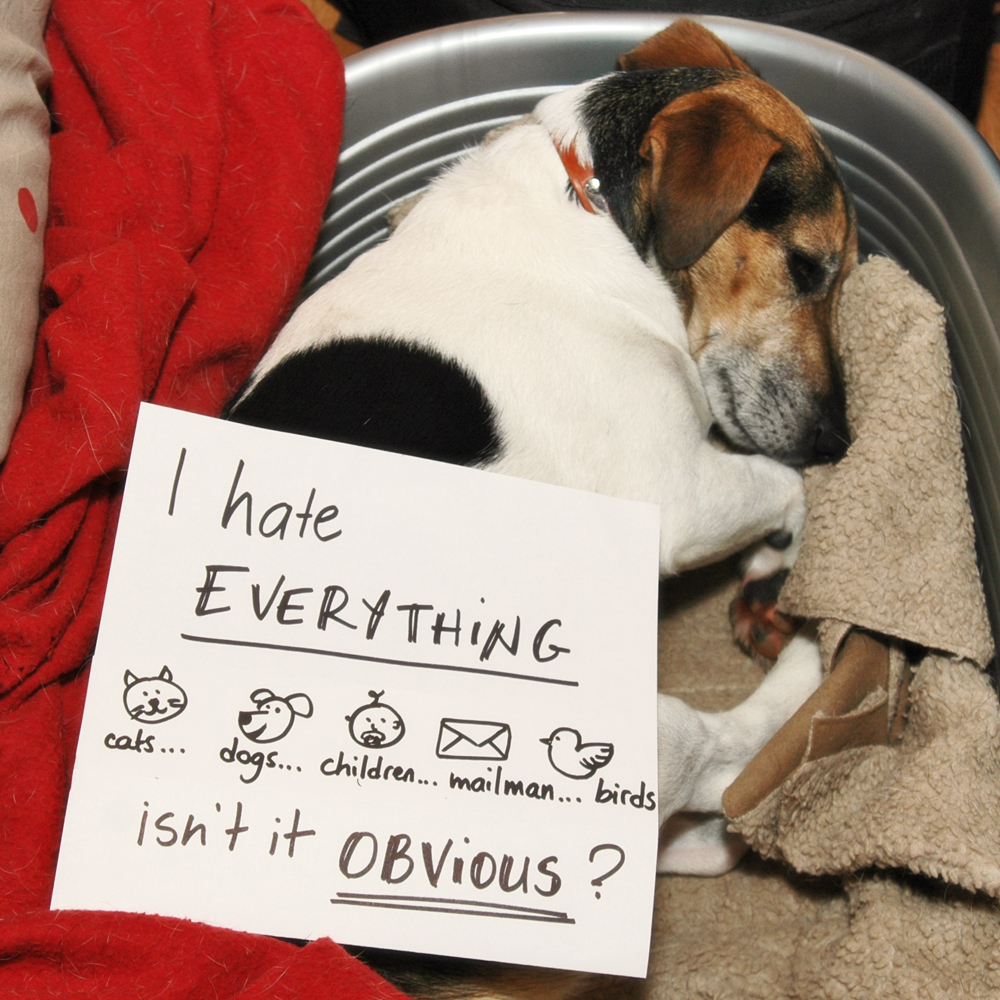 I hate
EVERYTHING
cats... dogs... children... mailman... birds
isn't it OBVIOUS?